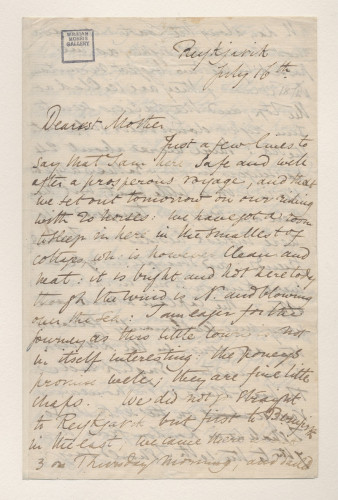 WILLIAM
MORRIS
GALLERY
Reykjavik
July 16th
Dearest Mother
Just a few lines to
say that I am here safe and well
after a prosperous voyage, and that
we set out tomorrow on our riding
with 20 horses: we have got a room
to sleep in here in the smallest of
cottages wh: is however clean and
neat: it is bright and not here today
though the wind is N. and blowing
over the sea: I am eager for the
journey as this little town is not
in itself interesting: the poneys
promise well; they are fine little
chaps. We did not go straight
to Reykjavik but first to
in the east we came there
3 on Thursday morning, and